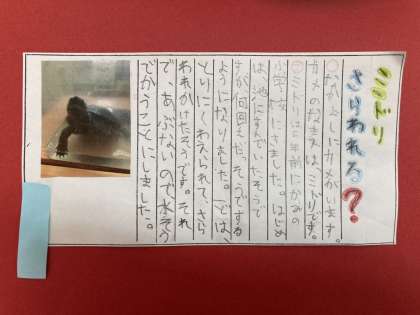 ミドリ
さらわれる？
①なかよしにカメがいます。
カメの名まえはミドリです。
②ミドリは5年前にかみの
小学校にきました。はじめ
は、池にすんでいたそうで
すが何回もだっそうする
ようになりました。一どは、
とりにくわえられて、さら
われかけたそうです。それ
で、あぶないので水そう
でかうことにしました。